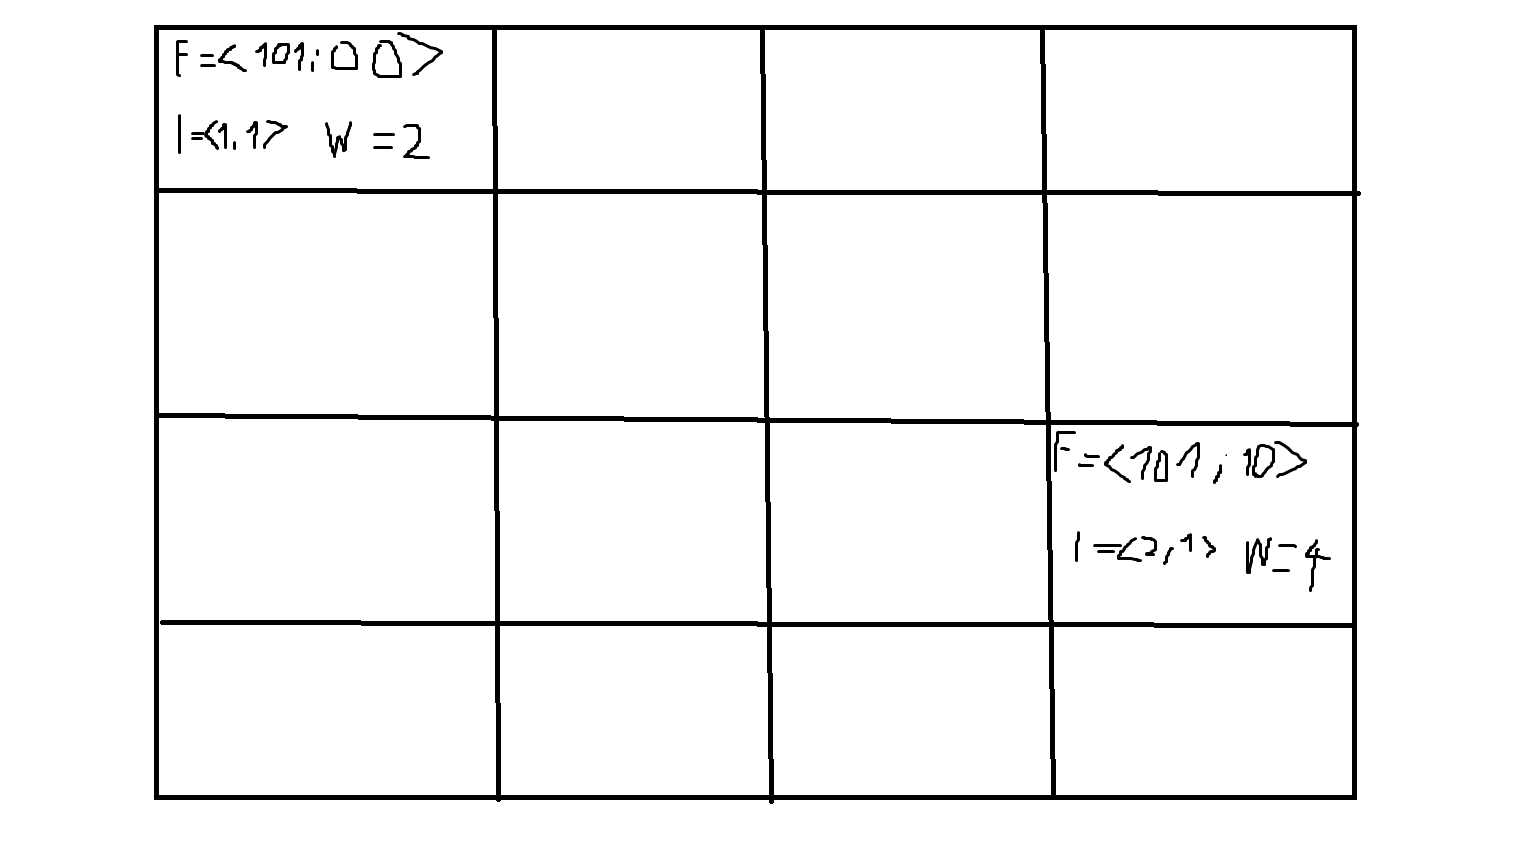 F=<101; 00>
I=<1,1> W=2
F=<101, 10>
I=<2,1> W=4